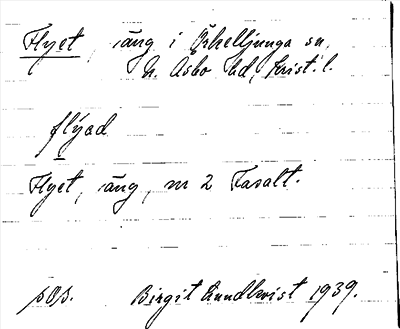 Flyet, äng i Örkelljunga sn,
N. Åsbo hd, Krist. l.
flýad
Flyet, äng, nr 2 Fasalt.
pOs. Birgit Lundkvist 1939.